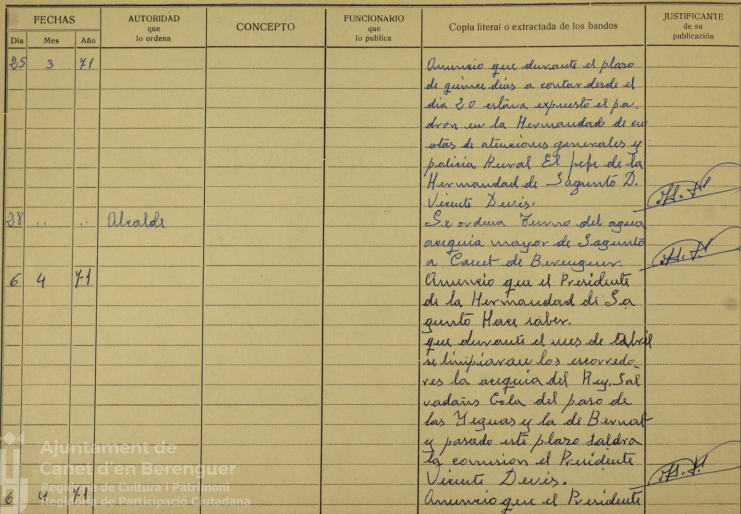 FECHAS
Día Mes Año
AUTORIDAD
que
lo ordena
CONCEPTO
FUNCIONARIO
que
lo publica
Copia literal o extractada de los bandos
JUSTIFICANTE
de su
publicación
25 3 71 Anuncio que durante el plazo
de quince dias a contar desde el
dia 20 estava expuesto el pa-
dron en la Hermandad de cu
otas de atenciones generales y
policia Rural El jefe de la
Hermandad de Sagunto D.
Vicente Devis.
28 " " Alcalde Se ordena Turno del agua
acequia mayor de Sagunto
a Canet de Berenguer.
6 4 71 Anuncio que el Presidente
de la Hermandad de Sa
gunto Hace saber.
que durante el mes de Abril
se limpiaran los escorredo-
res la acequia del Rey, Sal
vadans Cola del paso de
las Yeguas y la de Bernat
y pasado este plazo saldra
la comision el Presidente
Vicente Devis.
6 4 71 Anuncio que el Presidente
Ajuntament de
Canet d'en Berenguer
Regidoria de Cultura i Patrimoni
Regidoria de Participació Ciutadana